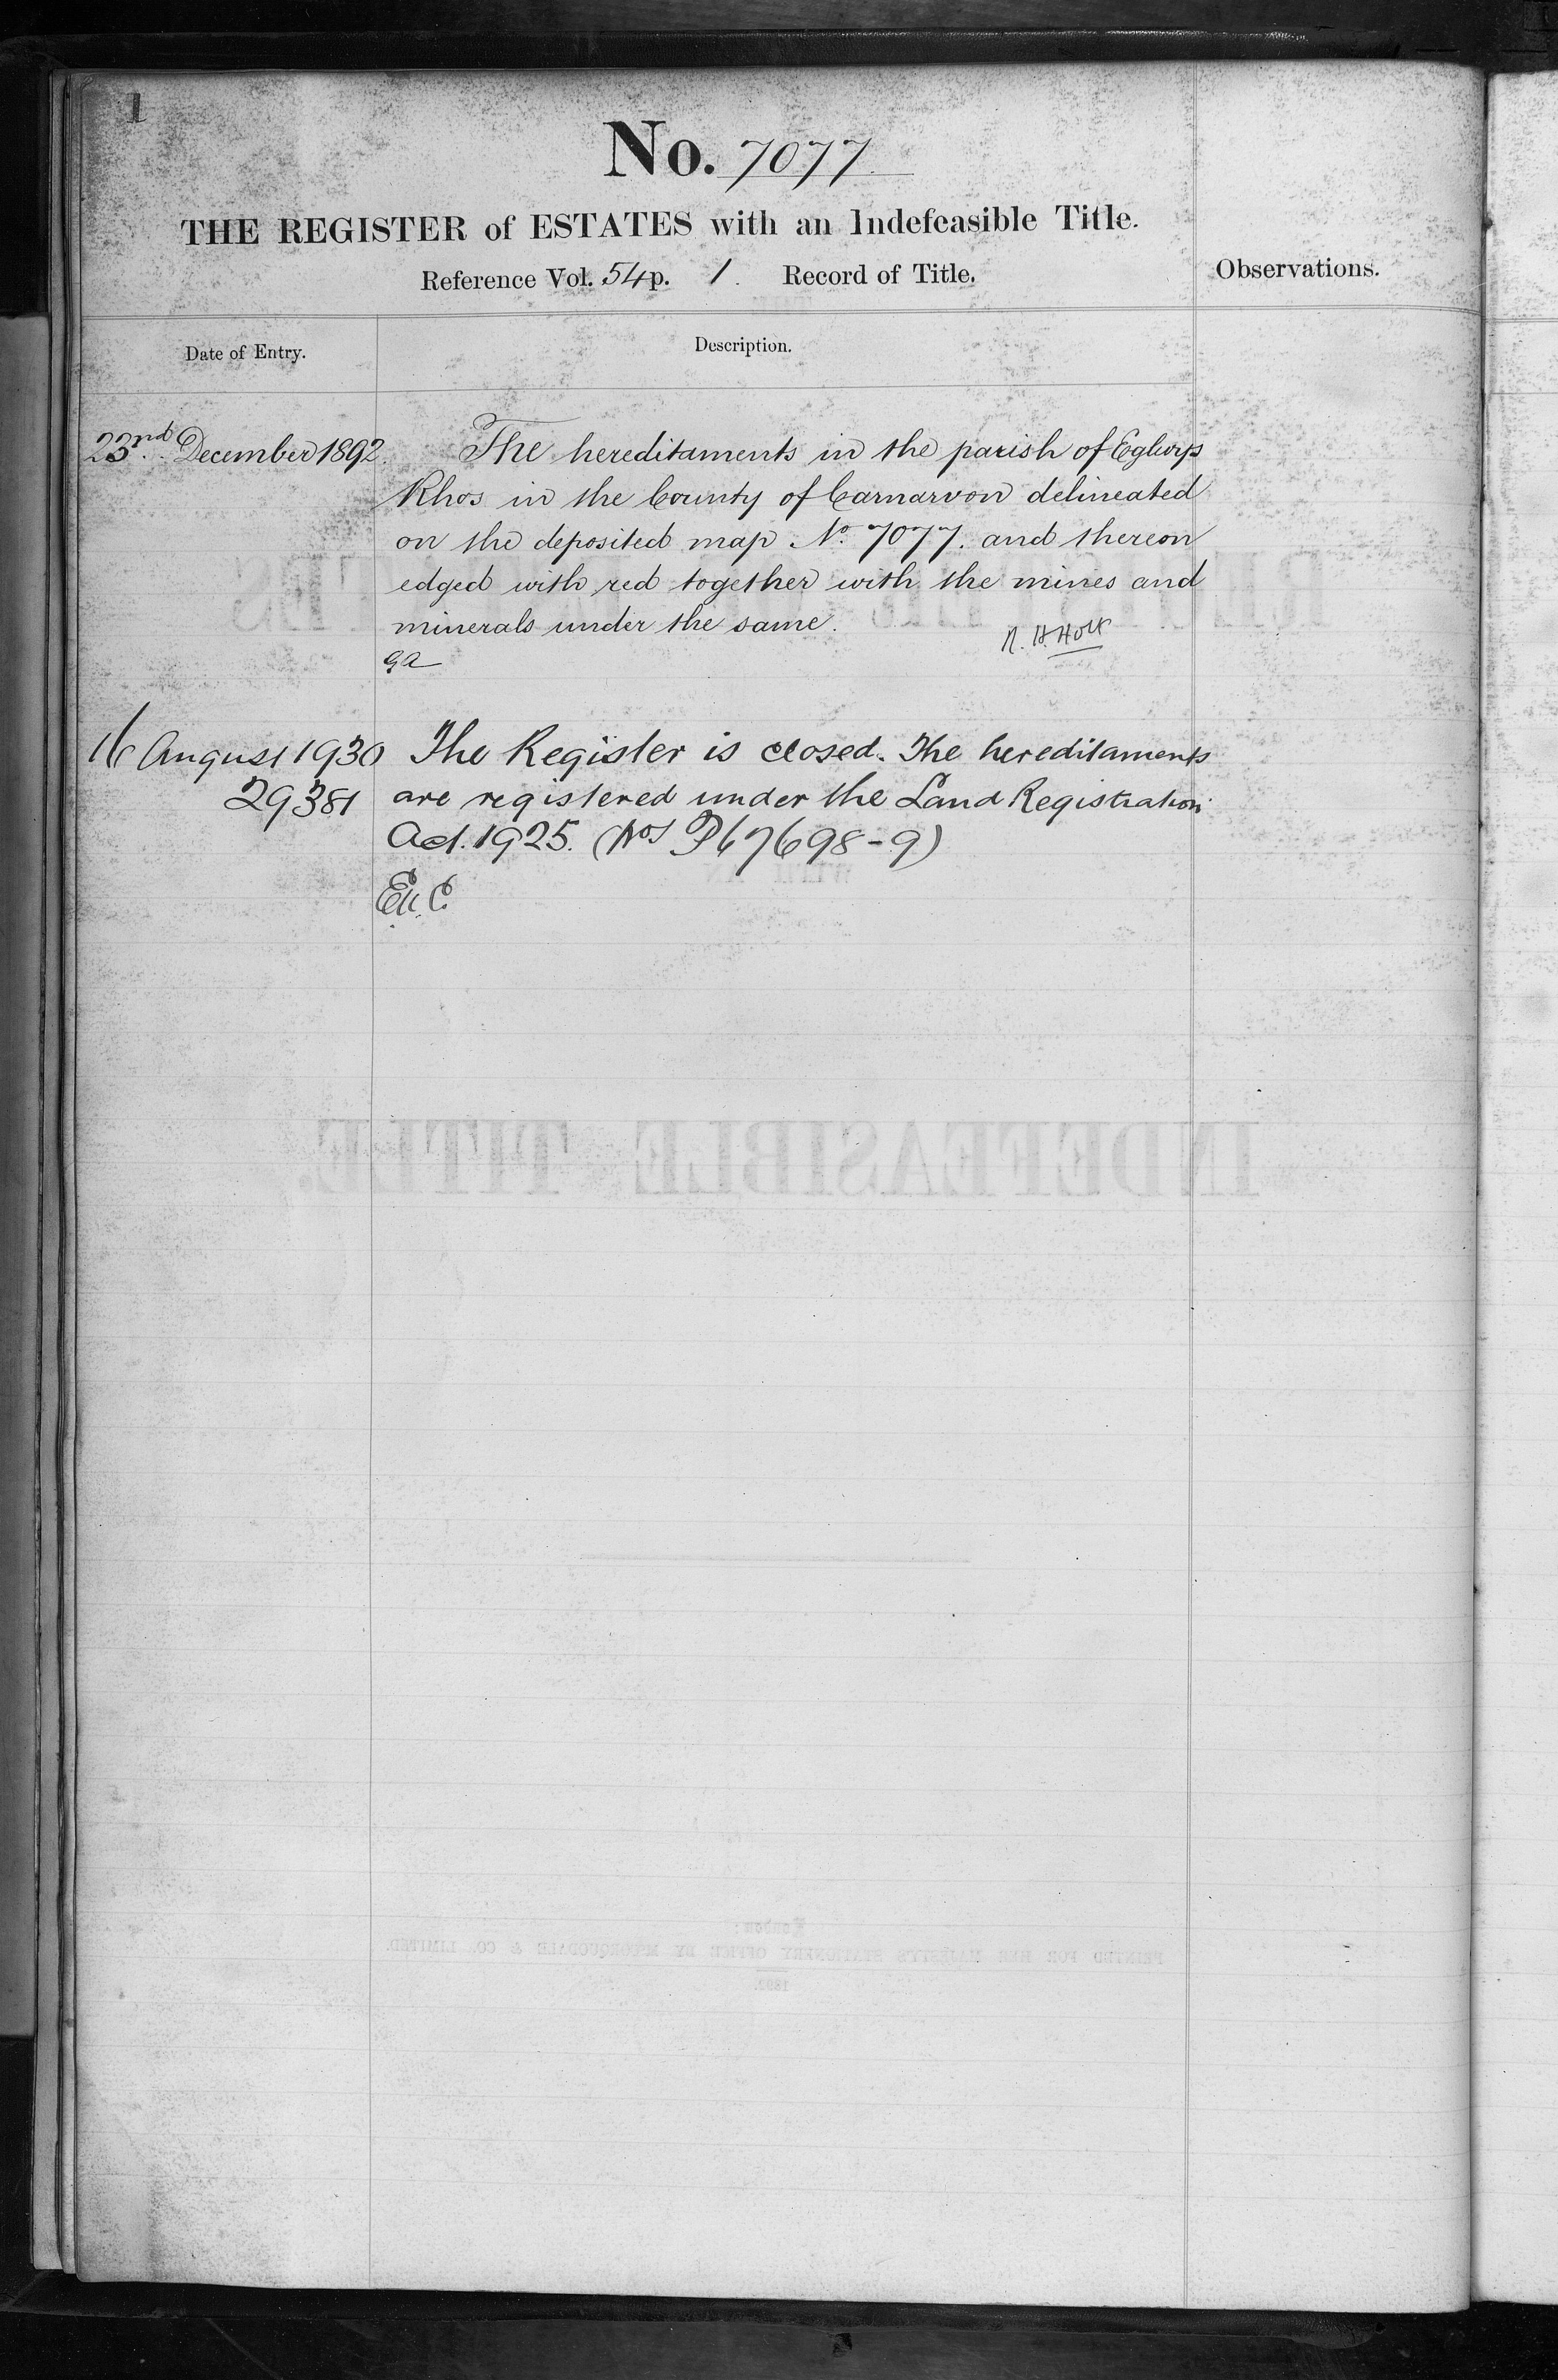 1
No. 7077.
THE REGISTER of ESTATES with an Indefeasible Title.
Reference Vol. 54 p. 1. Record of Title.
Observations.
Date of Entry.
Description.
23rd December 1892. The hereditaments in the parish of Eglwys
Rhos in the County of Carnarvon delineated
on the deposited map No. 7077. and thereon
edged with red together with the mines and
minerals under the same.
R. H. Holt
16 August 1930 The Register is closed. The hereditaments
29381 are registered under the Land Registration
Act. 1925. (Nos P67698-9)
INDEFEASIBLE TITLE.
London:
PRINTED FOR HER MAJESTY'S STATIONERY OFFICE BY MCCORQUODALE & CO. LIMITED.
1892.